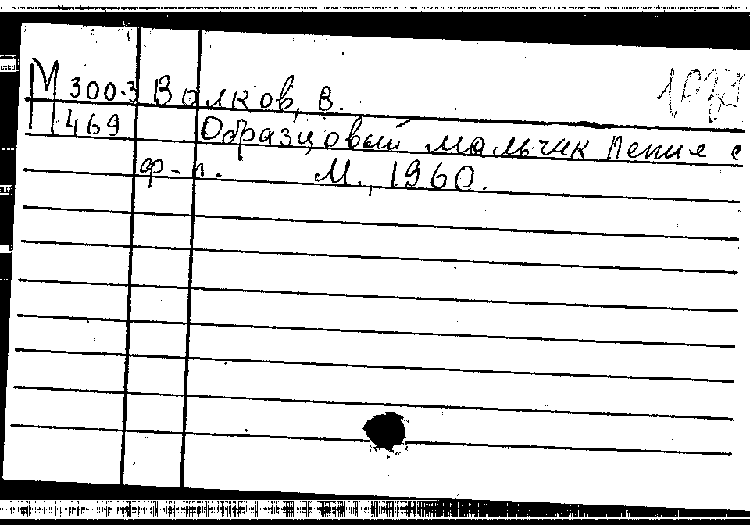 М 300-3 Волков, В.
469 Образцовый мальчик Пение с
ф-п. М., 1960.